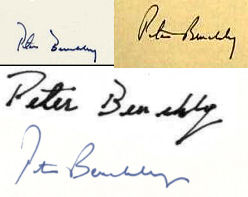 Peter Benchley
Peter Benchley
Peter Benchley
Peter Benchley